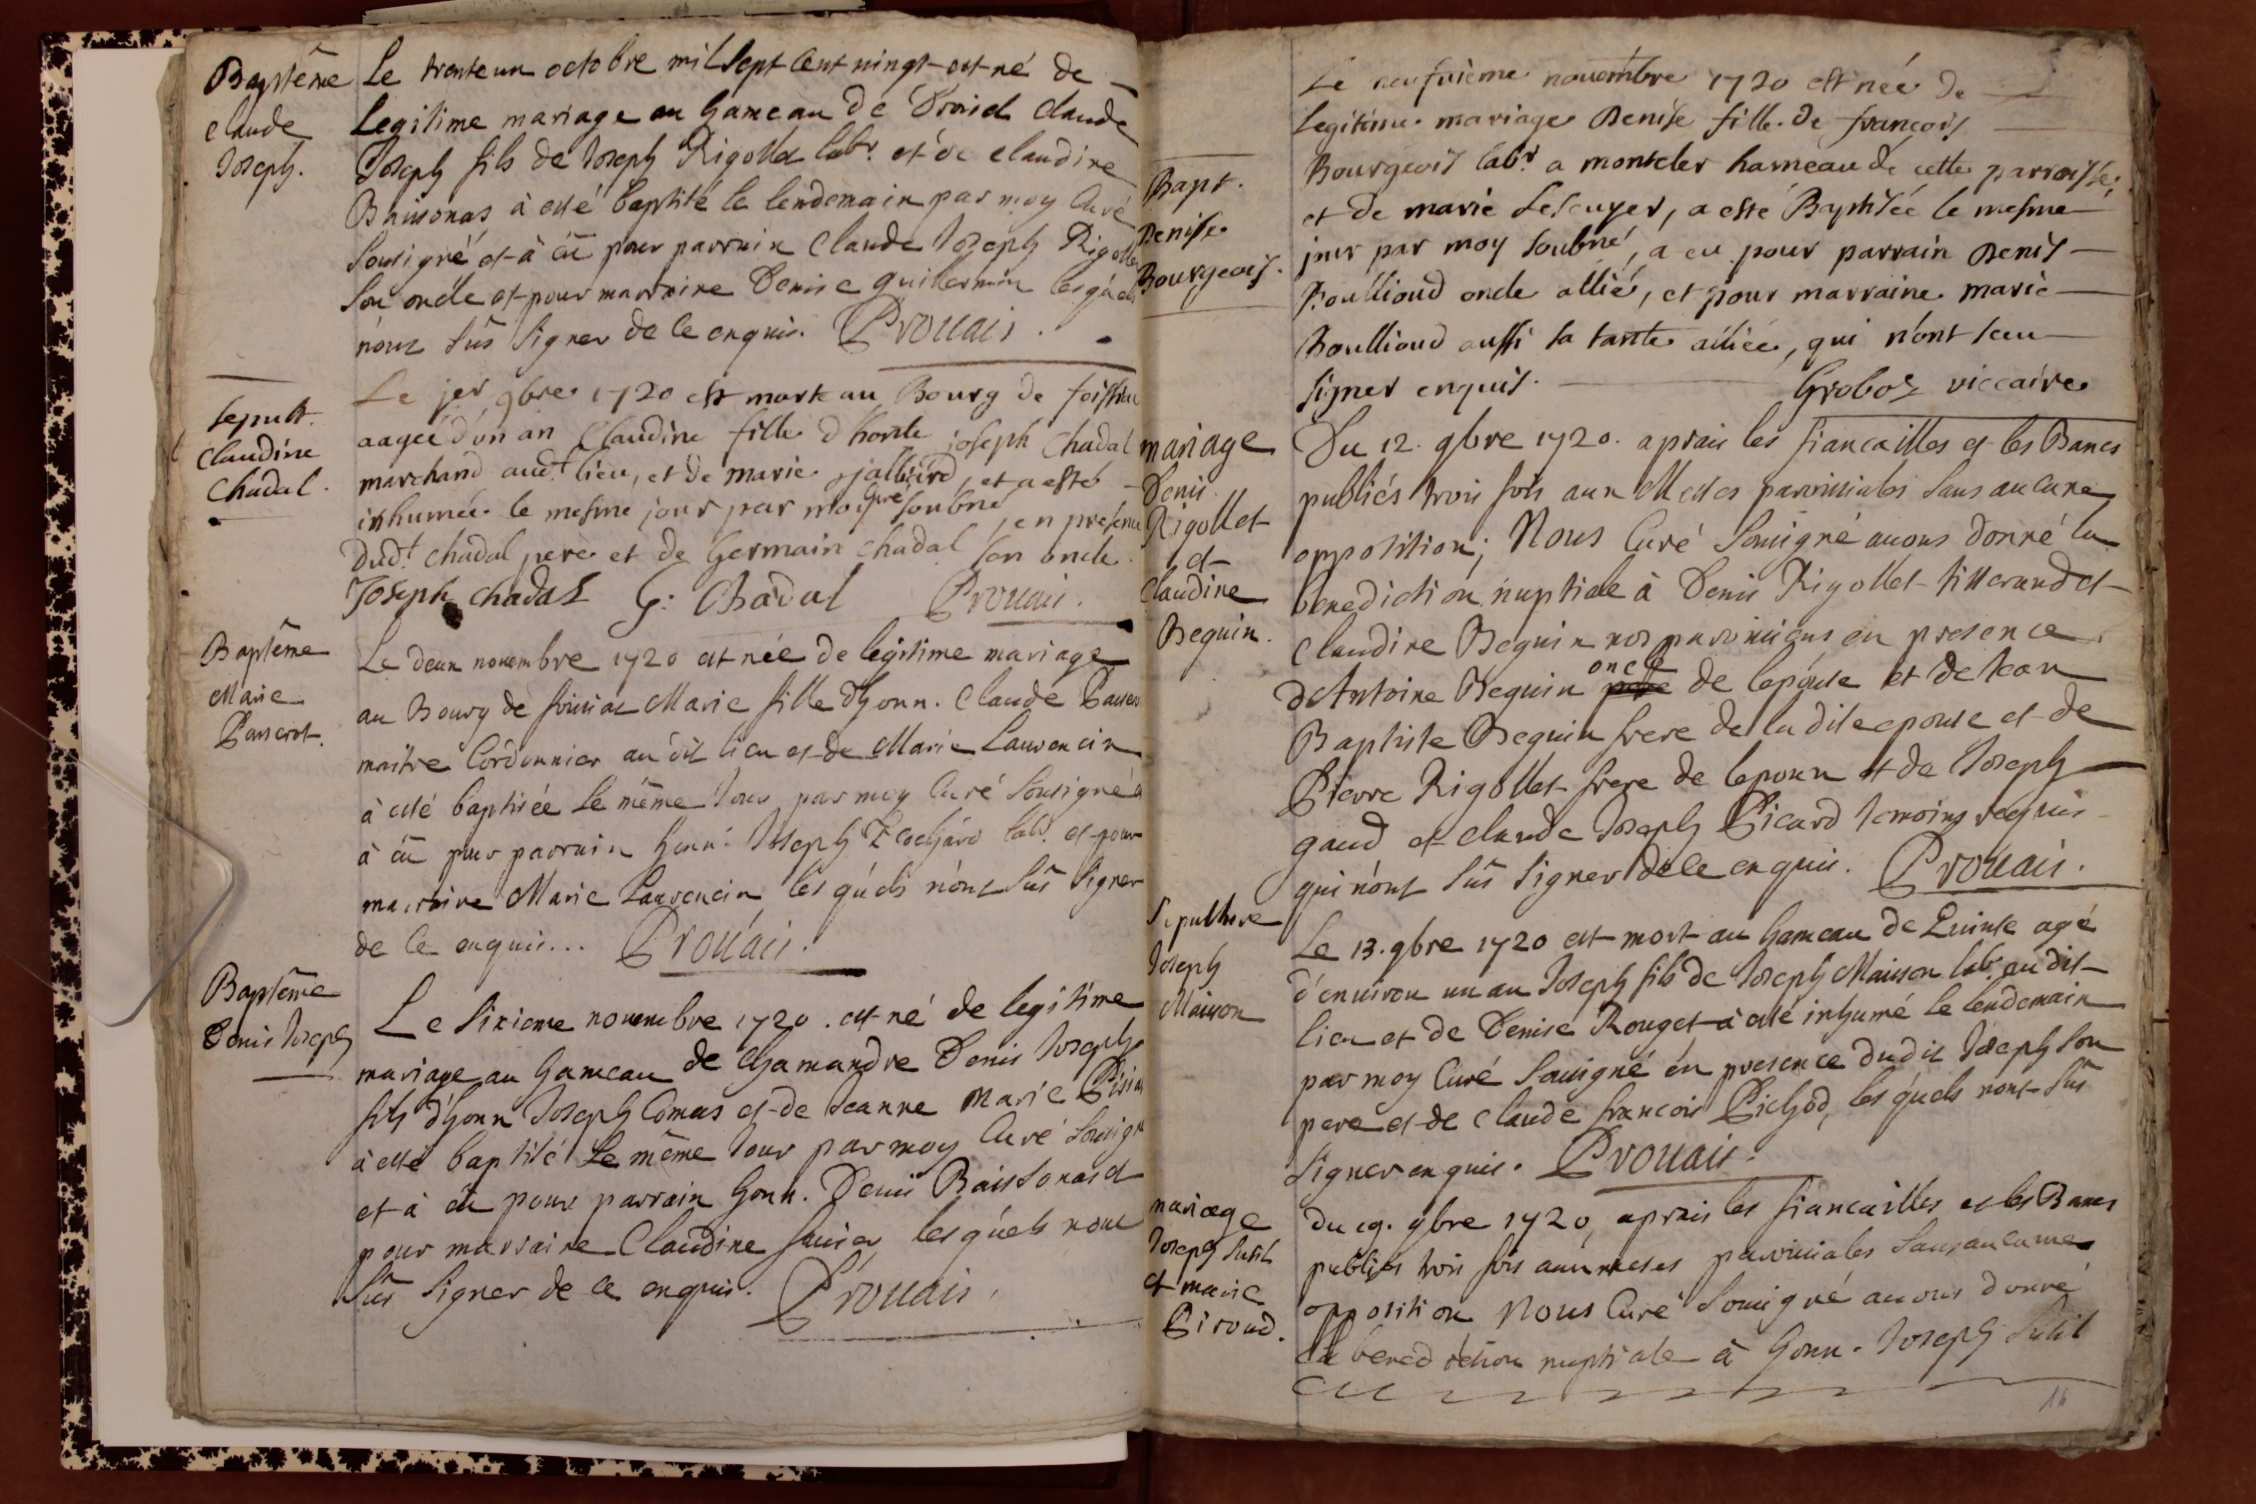 Baptême
Claude
Joseph.
Le trente un octobre mil sept cent vingt est né de
legitime mariage au hameau de Claude
Joseph fils de Joseph Rigollet labr. et de claudine
à esté baptisé le lendemain par moy Curé
Sousigné et à eü pour parrain Claude Joseph Rigollet
son oncle et pour marraine Denise Guillermin lesquels
n'ont sûs signer de ce enquis. Prouais.
Sepult.
Claudine
Chadal.
Le jer 9bre 1720 est morte au Bourg de
aagée d'un an Claudine fille d'honte joseph Chadal
marchand audt. lieu, et de marie et a esté
inhumée le mesme jour par moy Curé soubné, en presence
dudt. Chadal pere et de Germain Chadal son oncle.
Joseph chadal G: Chadal Prouais.
Baptême
Marie
Le deux novembre 1720 est née de legitime mariage
au Bourg de Marie fille d'honn. Claude
maitre Cordonnier au dit lieu et de Marie Laurencin
à esté baptisée le même Jour par moy Curé Sousigné
à eü pour parrain honn. Joseph labr. et pour
marraine Marie Laurencin, lesquels n'ont sûs signer
de ce enquis... Prouais.
Baptême
Denis Joseph
Le Sixieme novembre 1720. est né de legitime
mariage au hameau de Chamandre Denis Joseph
fils d'honn Joseph Comas et de Jeanne Marie
à esté baptisé le même Jour par moy Curé Sousigné
et à eü pour parrain honn. Denis
pour marraine Claudine lesquels n'ont
sûs signer de ce enquis. Prouais.
Bapt.
Denise
Bourgeois.
Le neufvieme novembre 1720 est née de
legitime mariage Denise fille de françois
Bourgeois labr. a montcler hameau de cette parroisse,
et de marie Lescuyer, a esté Baptisée le mesme
jour par moy soubné, a eu pour parrain Denis
Boullioud oncle allié, et pour marraine marie
Boullioud aussi sa tante alliée, qui n'ont sceu
signer enquis. Groboz viccaire
mariage
Denis
Rigollet
et
Claudine
Beguin.
Du 12. 9bre 1720. aprais les fiancailles et les Bancs
publiés trois fois aux Messes parroissiales sans aucune
opposition; Nous Curé Sousigné auons donné la
benediction nuptiale à Denis Rigollet tisserand et
Claudine Beguin nos parroissiens en presence
d'Antoine Beguin oncle de l'epouse et de Jean
Baptiste Beguin frere de la dite epouse et de
Pierre Rigollet frere de lepoux et de Joseph
gaud et claude Joseph Picard temoins requis
qui n'ont sûs signer de ce enquis. Prouais.
Sepulture
Joseph
Maisson
Le 13. 9bre 1720 est mort au hameau de agé
d'environ un an Joseph fils de Joseph Maisson labr. au dit
lieu et de Denise Rouget à esté inhumé le lendemain
par moy Curé Sousigné en presence dudit Joseph son
pere et de Claude françois Pichod, lesquels n'ont sûs
signer enquis. Prouais.
mariage
Joseph Subit
et marie
Piroud.
du 19. 9bre 1720, aprais les fiancailles et les Bancs
publiés trois fois aux messes parroissiales sans aucune
opposition Nous Curé Sousigné auons donné
la benediction nuptiale à honn. Joseph Subit
16